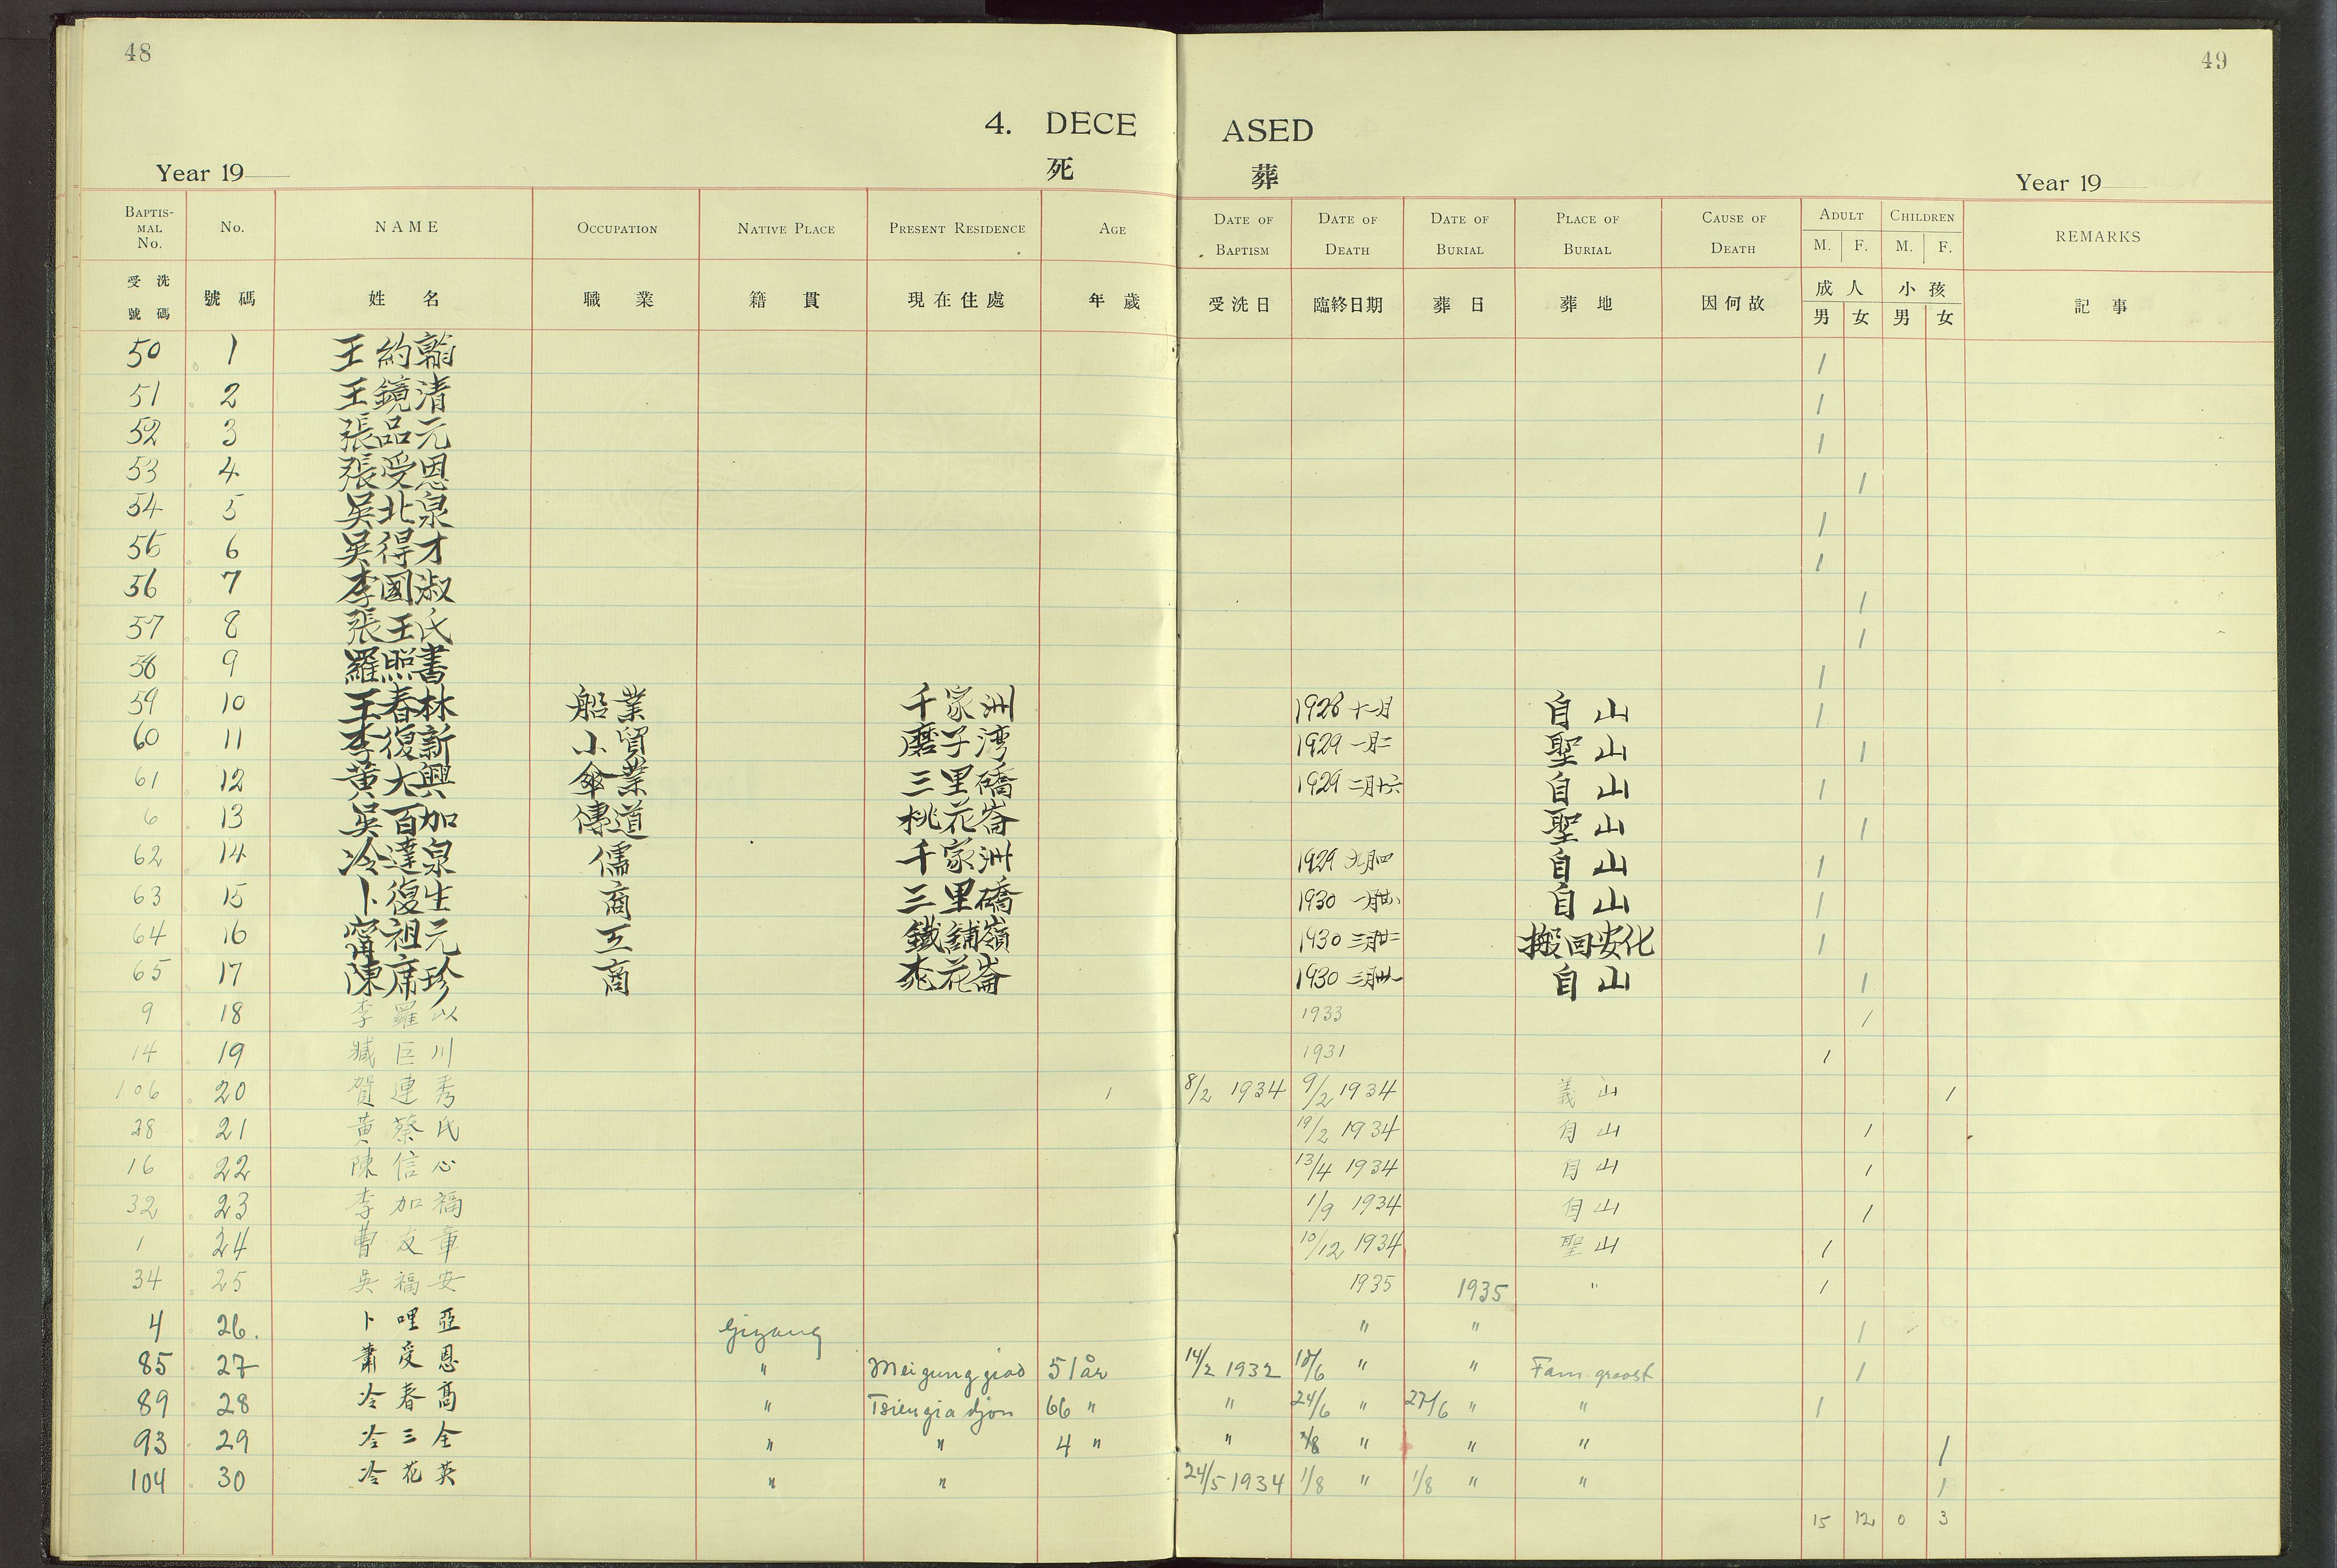 48
49
4. DECEASED
死 葬
Year 19
Year 19
BAPTISMAL No. No. NAME OCCUPATION NATIVE PLACE PRESENT RESIDENCE AGE DATE OF BAPTISM DATE OF DEATH DATE OF BURIAL PLACE OF BURIAL CAUSE OF DEATH ADULT CHILDREN REMARKS
M. F. M. F.
受洗號碼 號碼 姓名 職業 籍貫 現在住處 年歲 受洗日 臨終日期 葬日 葬地 因何故 成人 小孩 記事
男 女 男 女
50 1 王約翰 1
51 2 王鏡清 1
52 3 張品元 1
53 4 張受恩 1
54 5 吳北泉 1
55 6 吳得才 1
56 7 李國淑 1
57 8 張王氏 1
58 9 羅照書 1
59 10 王春林 船業 千家洲 1928 十一月 自山 1
60 11 李復新 小貿 磨子湾 1929 一月二 聖山 1
61 12 黃大興 傘業 三里礄 1929 二月十六 自山 1
6 13 吳百加 傳道 桃花崙 聖山 1
62 14 冷達泉 儒 千家洲 1929 九月四 自山 1
63 15 卜復生 商 三里礄 1930 一月 自山 1
64 16 甯祖元 工 鐵舖嶺 1930 三月廿二 搬回安化 1
65 17 陳席珍 商 桃花崙 1930 三月 自山 1
9 18 李羅以 1933 1
14 19 臧巨川 1931 1
106 20 賀連秀 1 8/2 1934 9/2 1934 義山 1
28 21 黄蔡氏 19/2 1934 自山 1
16 22 陳信心 13/4 1934 自山 1
32 23 李加福 1/9 1934 自山 1
1 24 曹友章 10/12 1934 聖山 1
34 25 吳福安 1935 1935 " 1
4 26. 卜哩亞 Giyang " " 1
85 27 蕭受恩 " Meigunggiao 51 år 14/2 1932 18/6 " " Fam. gravst 1
89 28 冷春高 " Tsiengiadjon 66 " " 24/6 " 27/6 " " 1
93 29 冷三全 " " 4 " " /8 " " " 1
104 30 冷花英 " " 24/5 1934 1/8 " 1/8 " " 1
15 12 0 3